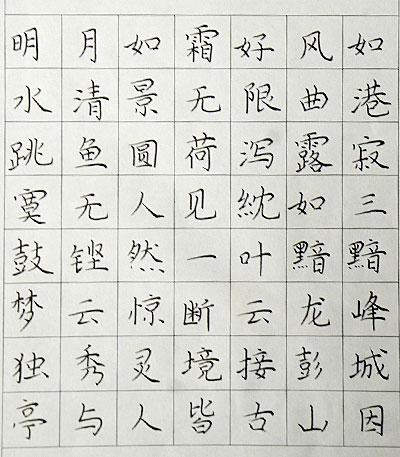 明月如霜好风如
水清景无限曲港
跳鱼圆荷泻露寂
寞无人见紞如三
鼓铿然一叶黯黯
梦云惊断云龙峰
独秀灵境接彭城
亭与人皆古山因